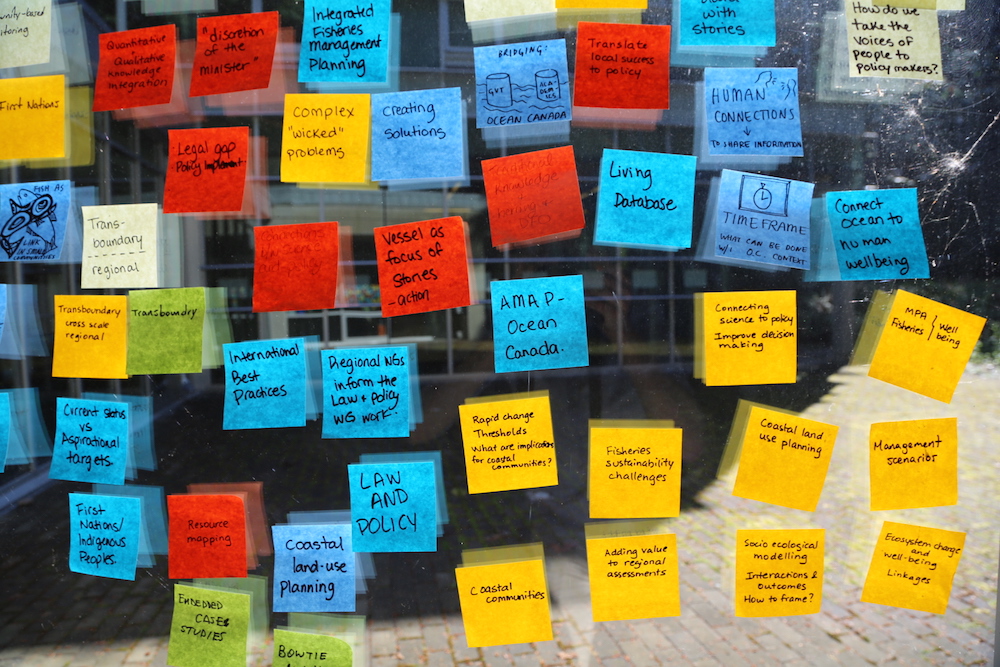 Quantitative
Qualitative
Knowledge
Integration
"discretion
of the
minister"
Integrated
Fisheries
Management
Planning
BRIDGING:
GVT
ACA-
DEM-
ICS
OCEAN CANADA
Translate
local success
to policy
with
stories
How do we
take the
voices of
people to
policy makers?
First Nations
Legal gap
Policy implement
Complex
"wicked"
problems
Creating
solutions
HUMAN
CONNECTIONS
TO SHARE INFORMATION
FISH AS
LINK
Trans-
boundary
regional
Vessel as
focus of
Stories
-action
Knowledge
Living
Database
TIMEFRAME
WHAT CAN BE DONE
W/I O.C. CONTEXT
Connect
ocean to
human
wellbeing
Transboundary
cross scale
regional
Transboundry
International
Best
Practices
Regional NGs
inform the
Law & Policy
WG work
AMAP-
Ocean
Canada.
Connecting
science to policy
Improve decision
making
MPA
Fisheries
Well
being
Current status
vs
Aspirational
targets
Rapid change
Thresholds
What are implications
for coastal
communities?
Fisheries
sustainability
challenges
Coastal land
use planning
Management
scenarios
First
Nations/
Indigenous
Peoples.
Resource
mapping
LAW
AND
POLICY
Coastal
land-use
Planning
Coastal
communities
Adding value
to regional
assessments
Socio ecological
modelling
Interactions &
outcomes
How to frame?
Ecosystem change
and
well-being
Linkages
EMBEDDED
CASES
STUDIES
BOWTIE